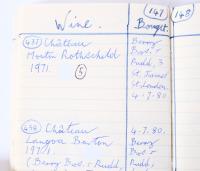 147
148
Wine.
Bought.
431 Château
Moutn Rothschild
1971.
5
Berry
Bros. &
Rudd, 3
St. James'
St. London.
4-7-80
432 Château
Langoa Barton
1971.
(Berry Bros. & Rudd,
4.7.80.
Berry
Bros. &
Rudd,